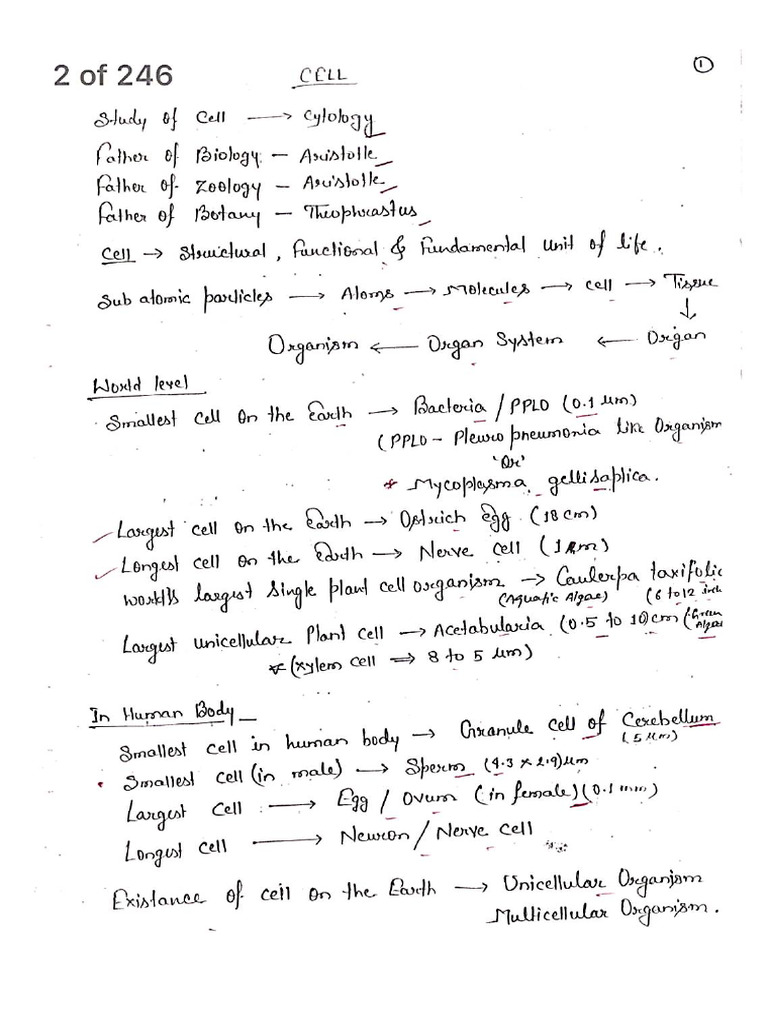 2 of 246
CELL
1
Study of Cell → Cytology
Father of Biology - Aristotle
Father of Zoology - Aristotle
Father of Botany - Theophrastus
Cell → Structural, Functional & Fundamental Unit of life.
Sub atomic particles → Atoms → Molecules → Cell → Tissue
↓
Organism ← Organ System ← Organ
World level
Smallest Cell On the Earth → Bacteria / PPLO (0.1 μm)
(PPLO - Pleuro pneumonia like Organism
'Or'
* Mycoplasma gellisaplica.
Largest cell on the Earth → Ostrich egg (18 cm)
Longest cell on the Earth → Nerve cell
World's largest Single plant cell organism → Caulerpa taxifolic
(Aquatic Algae) (6 to 12 inch
Largest unicellular Plant cell → Acetabularia (0.5 to 10)cm (Green Algae
* (xylem cell ⇒ 8 to 5 μm)
In Human Body
Smallest cell in human body → Granule cell of Cerebellum
(5 μm)
Smallest cell (in male) → Sperm (4.3 × 2.9)μm
Largest Cell → Egg / Ovum (in female) (0.1 mm)
Longest cell → Neuron / Nerve cell
Existance of cell on the Earth → Unicellular Organism
Multicellular Organism.